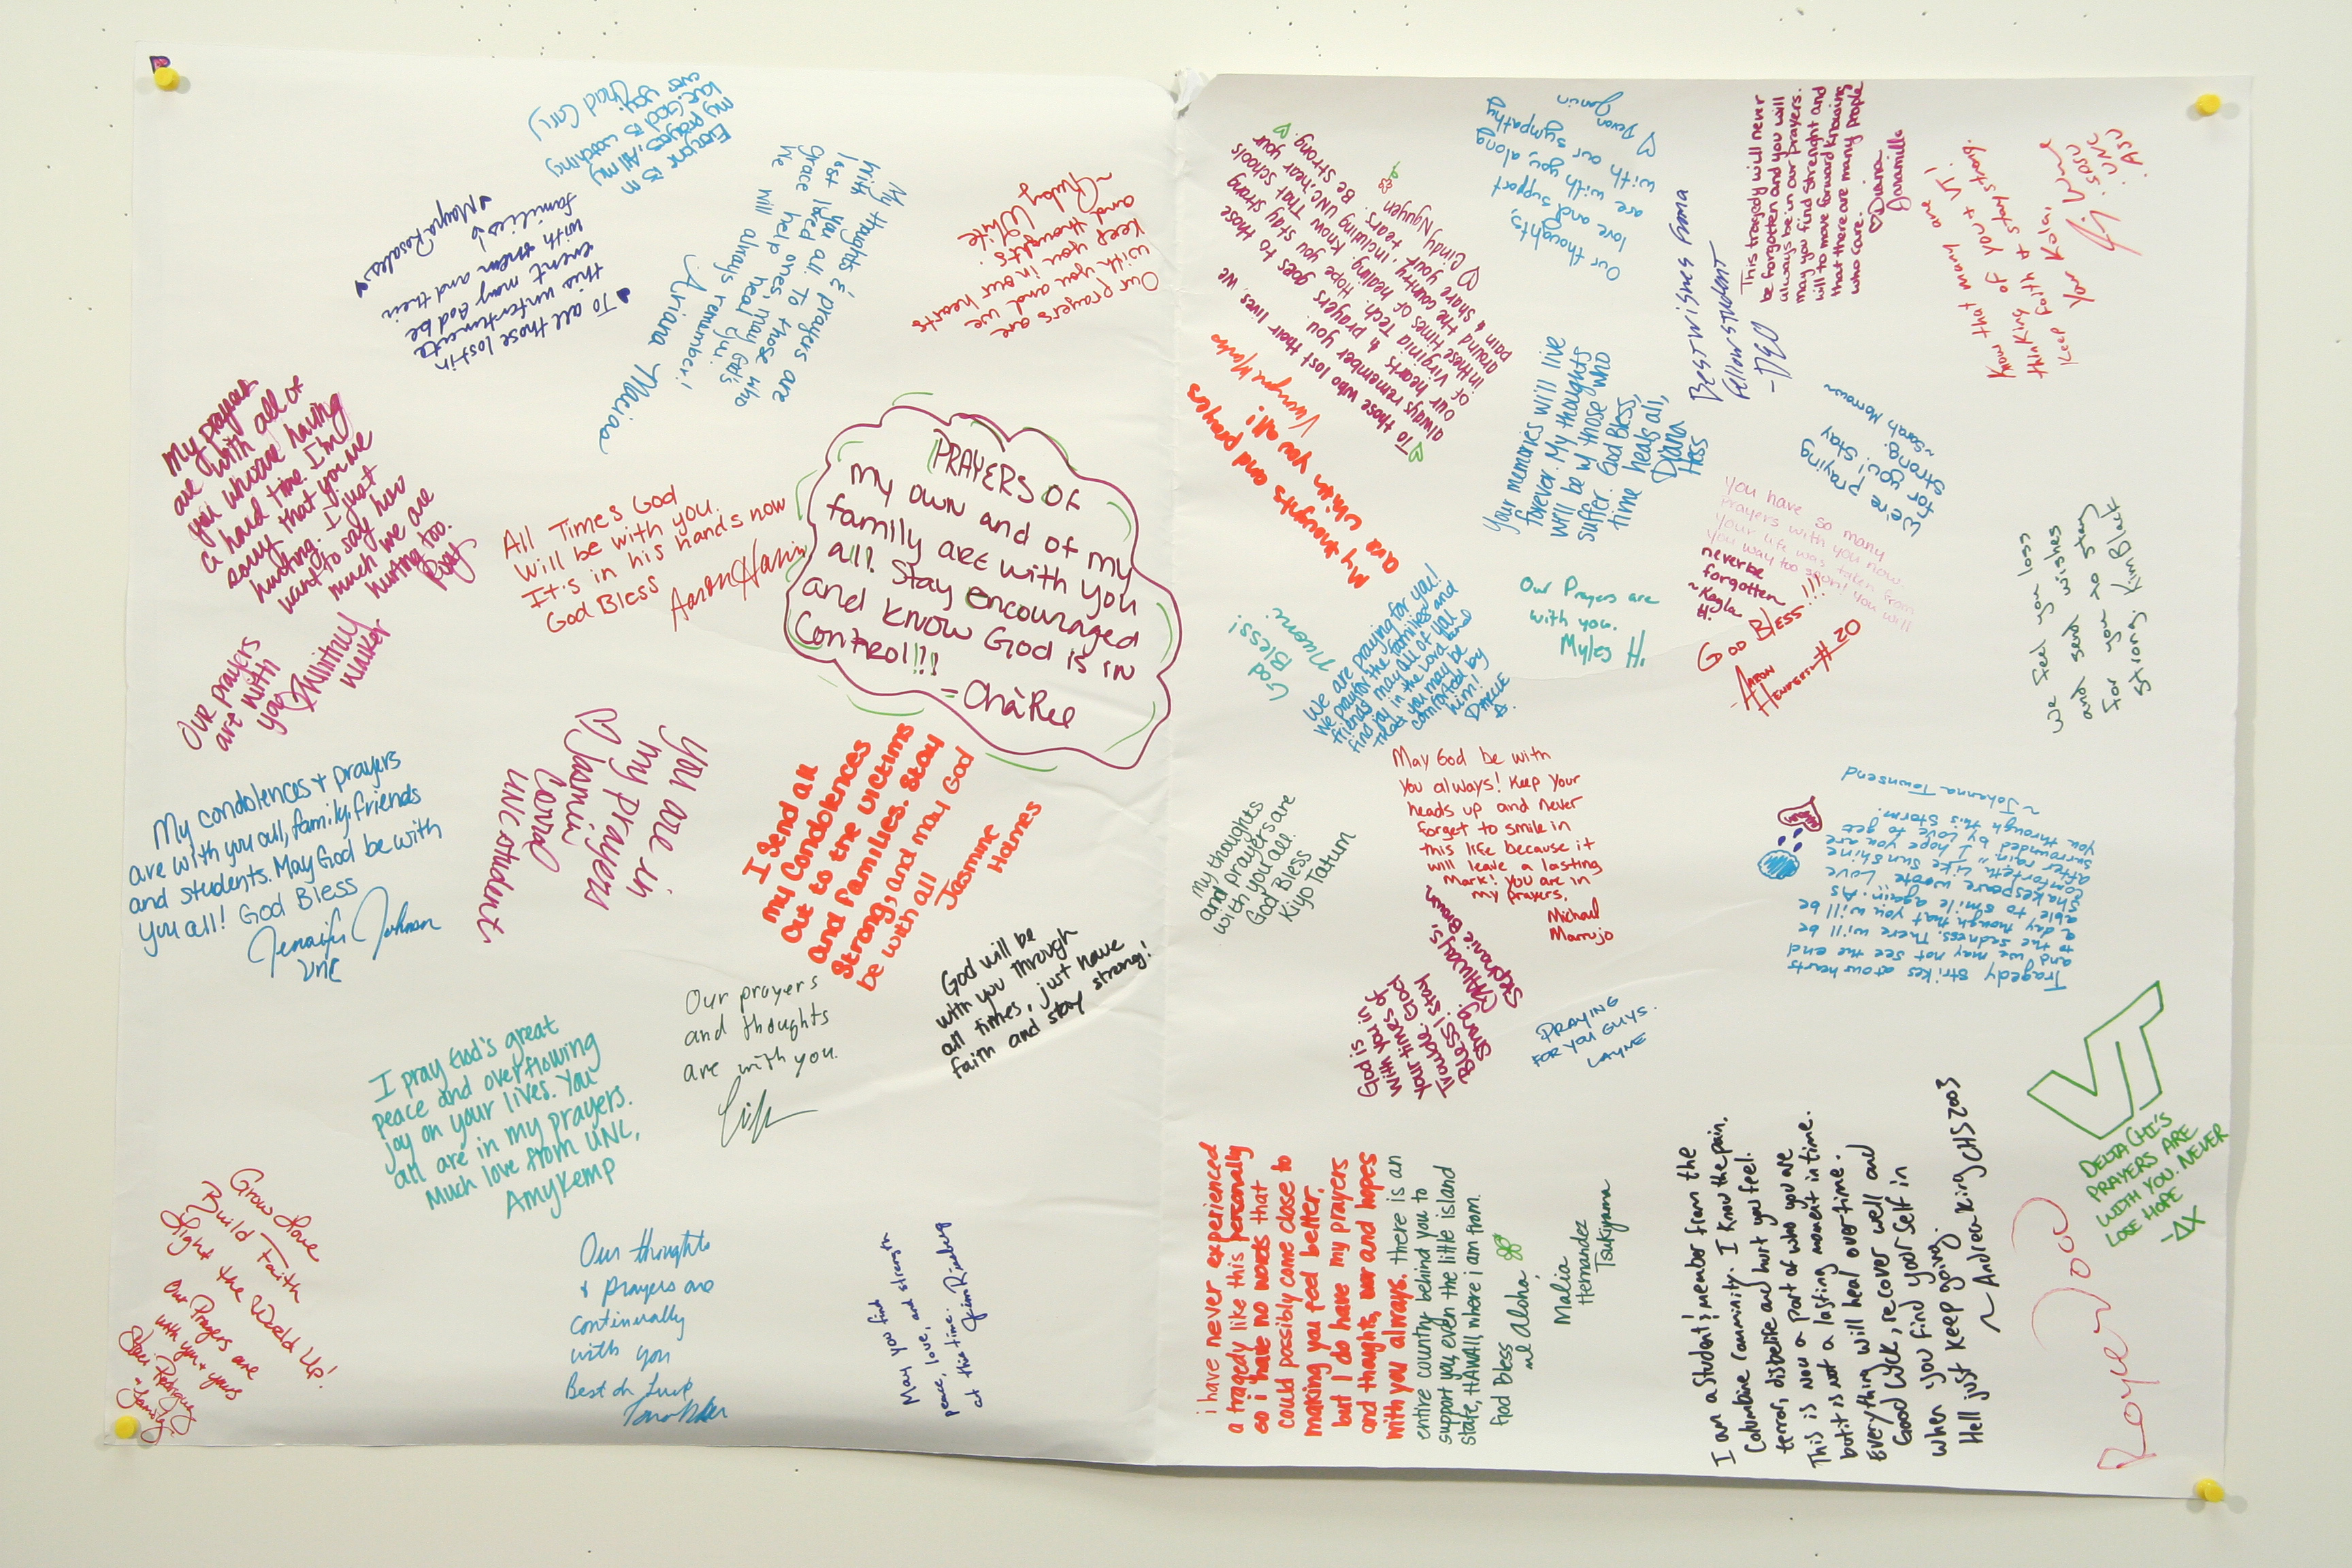 Everyone is in
my prayers, All my
love. God is watching
over you.
Chad Cary
To all those lost in
this unfortunate
event may God be
with them and their
families
Mayra Rosales
My thoughts & prayers are
with you all. To those who
lost loved ones, may God's
grace help heal you.
We will always remember!
Ariana Macias
Our prayers are
with you and we
keep you in our hearts
and thoughts.
~Ruby White
My prayers
are with all of
you who are having
a hard time. I'm
sorry that you are
hurting. I just
want to say how
much we are
hurting too.
All Times God
Will be with you.
It's in his hands now
God Bless
Aaron
PRAYERS of
my own and of my
family are with you
all. Stay encouraged
and know God is in
Control!!!
-ChàRee
Our prayers
are with
you
Whitney
Walker
My condolences + prayers
are with you all, family, friends
and students. May God be with
you all! God Bless
Jennifer Johnson
UNC
you are in
my prayers
Jasmin
Corral
UNC student
I Send all
my Condolences
Out to the victims
and families. Stay
Strong, and may God
be with all
Jasmine
Holmes
God will be
with you through
all times, just have
faith and stay strong!
Our prayers
and thoughts
are with you.
I pray God's great
peace and overflowing
joy on your lives. You
all are in my prayers.
Much love from UNC,
Amy Kemp
Grow Love
Build Faith
Light the World Up!
Our Prayers are
with you + yours
Rodriguez
& family
Our thoughts
& prayers are
continually
with you
Best of Luck
May you find
peace, love, and strength
at this time.
To those who lost their lives, we
always remember you
Our hearts & prayers goes to those
of Virginia Tech. Hope you stay strong
in these times of healing. Know That schools
around the country, including UNC, hear your
pain & share your tears. Be Strong.
Cindy Nguyen
Our thoughts,
love and support
are with you, along
with our sympathy
Devan
Best wishes from a
Fellow student
This tragedy will never
be forgotten and you will
always be in our prayers.
May you find strenght and
will to move forward knowing
that there are many people
who care.
Diana
Jaramillo
Know that many are
thinking of you + VT!
Keep faith + stay strong.
Keep your
UNC
ASU
My thoughts and prayers
are with you all!
Your memories will live
forever. My thoughts
will be w/ those who
suffer. God Bless,
time heals all,
Diana
Hess
We're praying
for you! Stay
strong.
~Sarah Morrow~
You have so many
prayers with you now.
Your life was taken from
you way too soon! You will
never be
forgotten
~Kayla
H.
God Bless!!!
-Aaron
Henderson #20
God
Bless!
We are praying for you!
We pray for the families and
friends may all of you
find joy in the Lord and
that you may be
comforted by
him!
Our Prayers are
with you.
Myles H.
We feel your loss
and send wishes
for you to stay
strong. Kim Black
My thoughts
and prayers are
with you all.
God Bless
Kiyo Tatum
May God be with
You always! Keep your
heads up and never
forget to smile in
this life because it
will leave a lasting
Mark! You are in
my prayers.
Michael
Marrujo
God is
with you in
your times of
Trouble. God
Bless! Stay
Strong
Always,
Stephanie
Praying
for you guys.
Layne
Tragedy strikes at our hearts
and we may not see the end
to the sadness. There will be
a day though that you will be
able to smile again. As
Shakespeare wrote "Love
comforteth like sunshine
after rain" I hope you are
surrounded by love to get
you through this storm.
~Johanna Townsend
VT
Delta Chi's
prayers are
with you. Never
lose hope
-ΔX
i have never experienced
a tragedy like this personally
so i have no words that
could possibly come close to
making you feel better,
but I do have my prayers
and thoughts, and hopes
with you always. there is an
entire country behind you to
support you, even the little island
state, HAWAII, where i am from.
God Bless
me aloha,
Malia
Hernandez
Tsukiyama
I am a student & member from the
Columbine Community. I know the pain,
terror, disbelife and hurt you feel.
This is now a part of who you are
but it is not a lasting moment in time.
Everything will heal over time.
Good luck, recover well and
when you find your self in
Hell just keep going.
~Andrea King CHS 2003